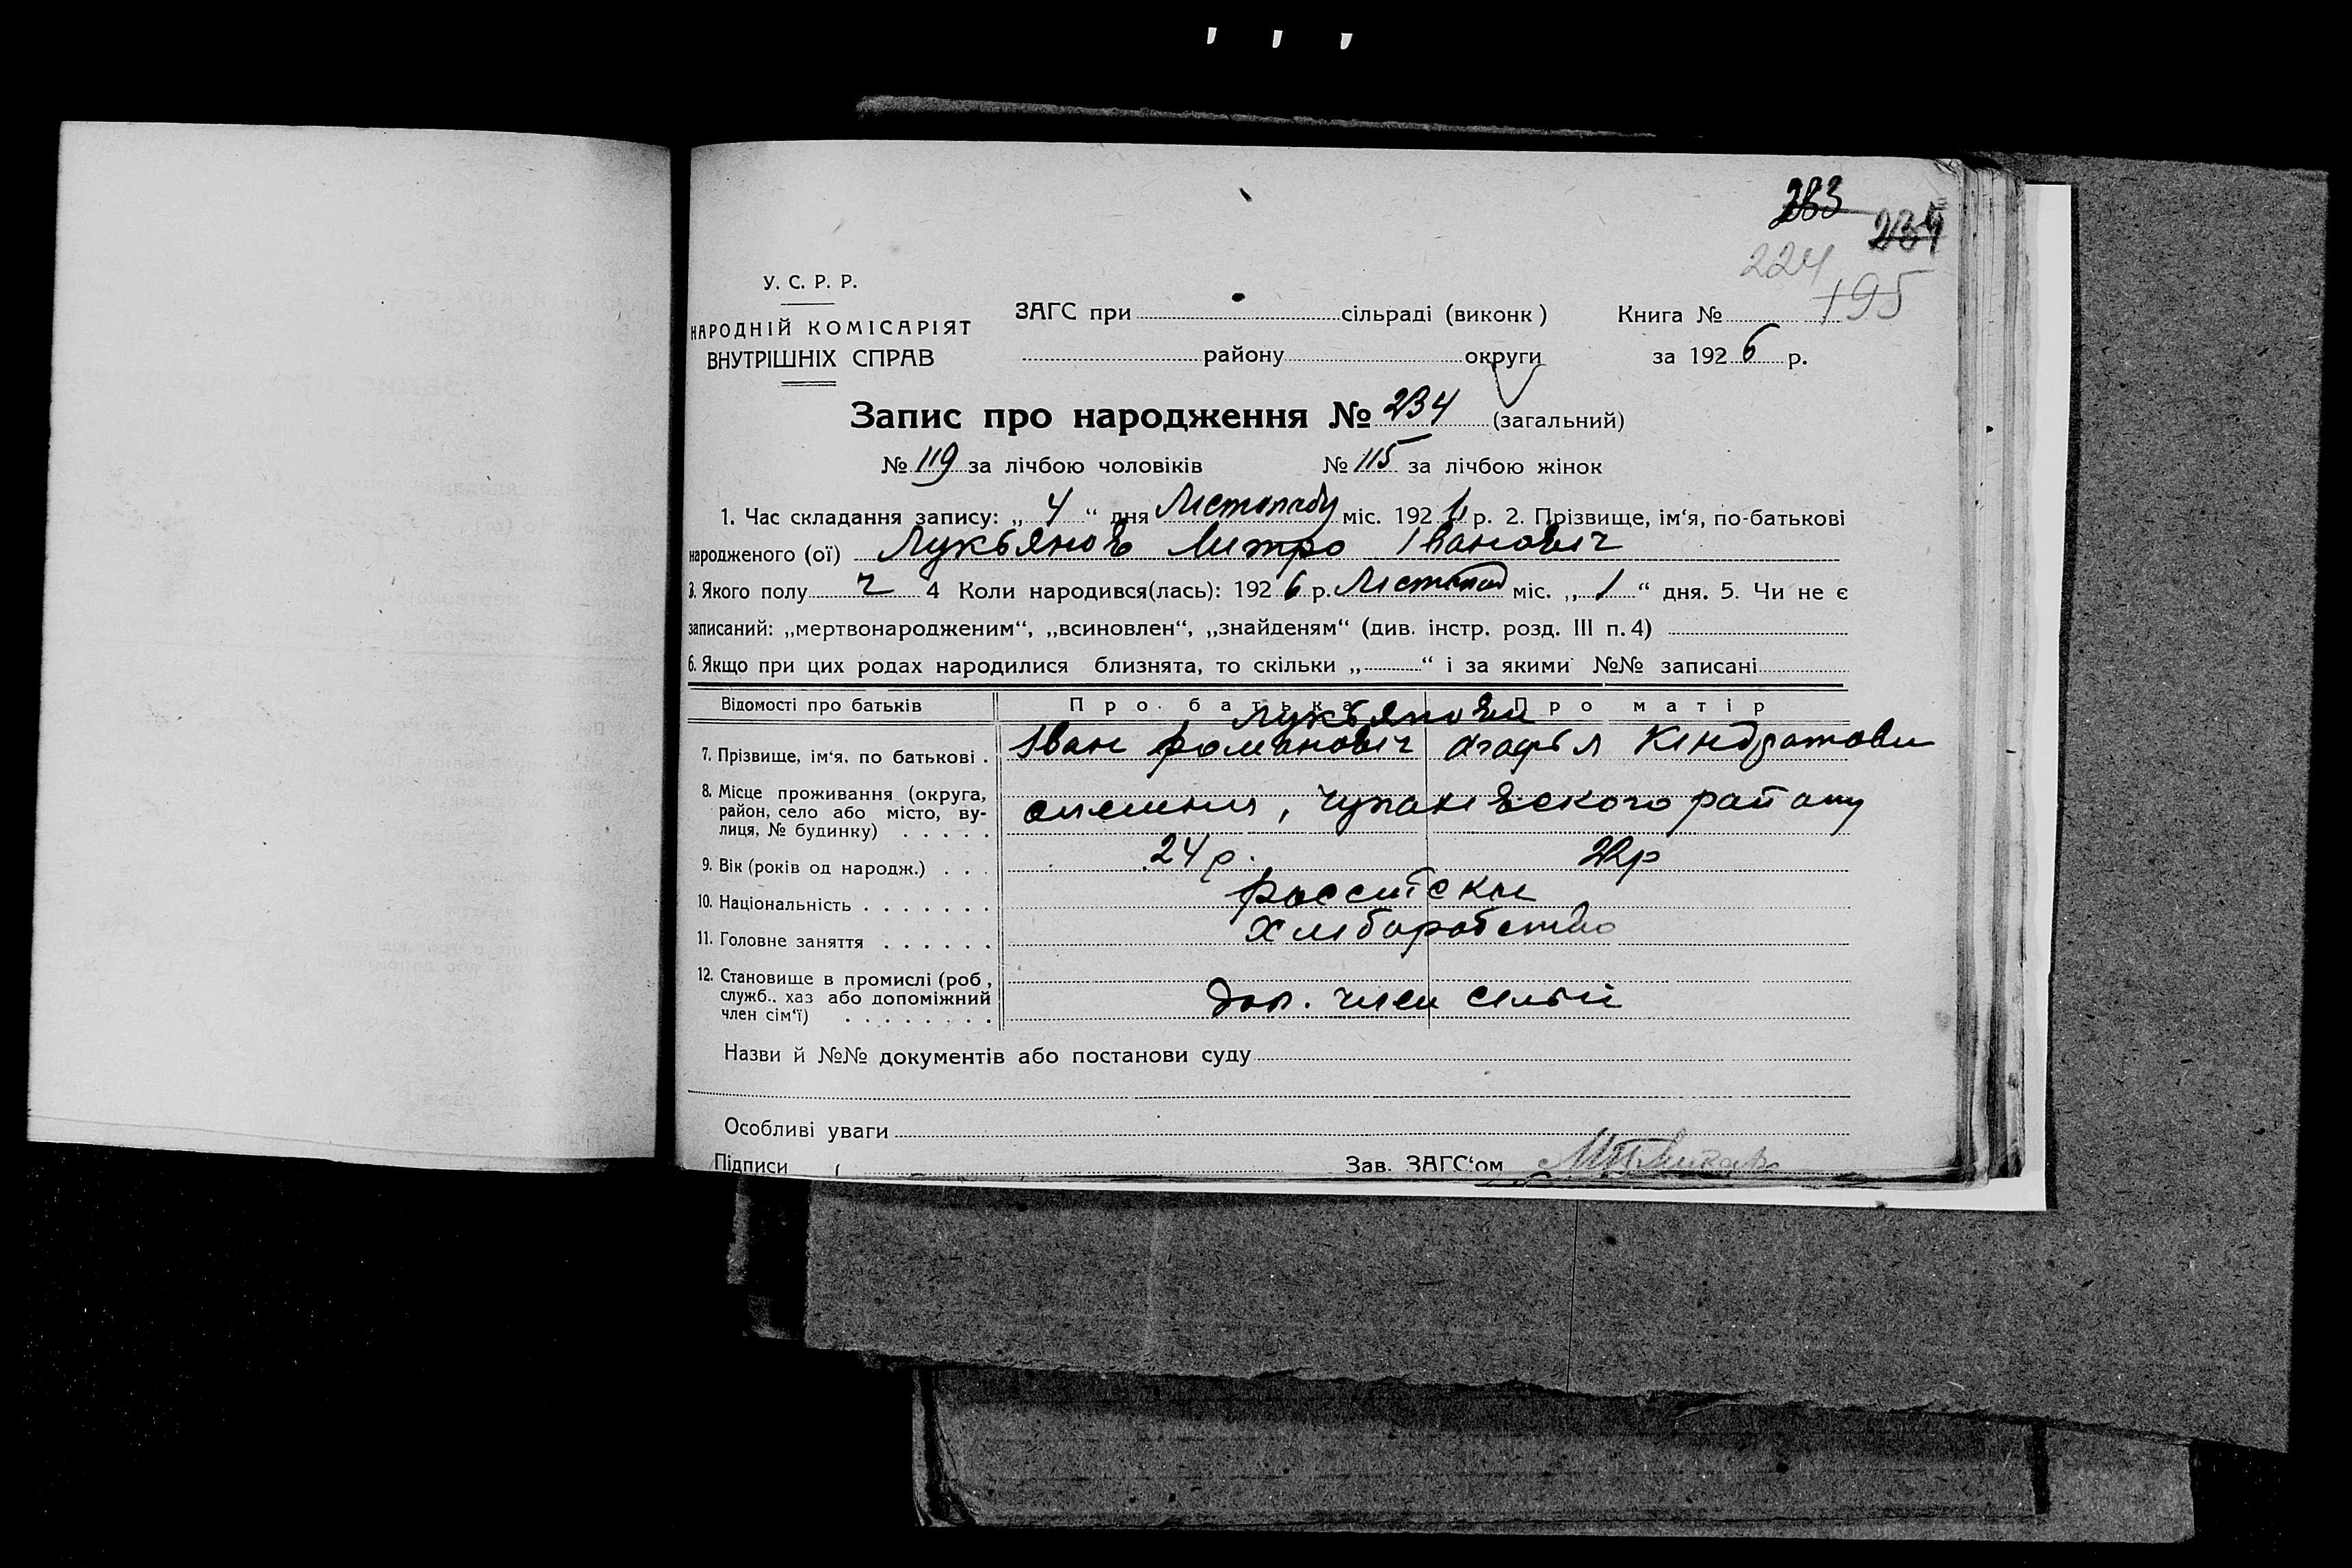 283
234
224
195
У. С. Р. Р.
НАРОДНІЙ КОМІСАРІЯТ
ВНУТРІШНІХ СПРАВ
ЗАГС при сільраді (виконк)
району округи
Книга №
за 1926 р.
Запис про народження № 234 (загальний)
№ 119 за лічбою чоловіків № 115 за лічбою жінок
1. Час складання запису: „4“ дня Листопаду міс. 1926 р. 2. Прізвище, ім‘я, по-батькові
народженого (ої) Лукьянов Митро Іванович
3. Якого полу ч 4 Коли народився(лась): 1926 р. Листопад міс. „1“ дня. 5. Чи не є
записаний: „мертвонародженим“, „всиновлен“, „знайденям“ (див. інстр. розд. III п. 4)
6. Якщо при цих родах народилися близнята, то скільки „ “ і за якими №№ записані
Відомості про батьків Про батька Про матір
Лукьянови
7. Прізвище, ім‘я, по батькові . Іван Романовіч Агафья Кіндратовн
8. Місце проживання (округа,
район, село або місто, ву-
лиця, № будинку) . . . . . , району
9. Вік (років од народж.) . . . 24 р. 22р
10. Національність . . . . . . . Россиїски
11. Головне заняття . . . . . . Хлиборобство
12. Становище в промислі (роб,
служб.. хаз або допоміжний
член сім‘ї) . . . . . . . . Доп. член сімьи
Назви й №№ документів або постанови суду
Особливі уваги
Підписи Зав. ЗАГС‘ом